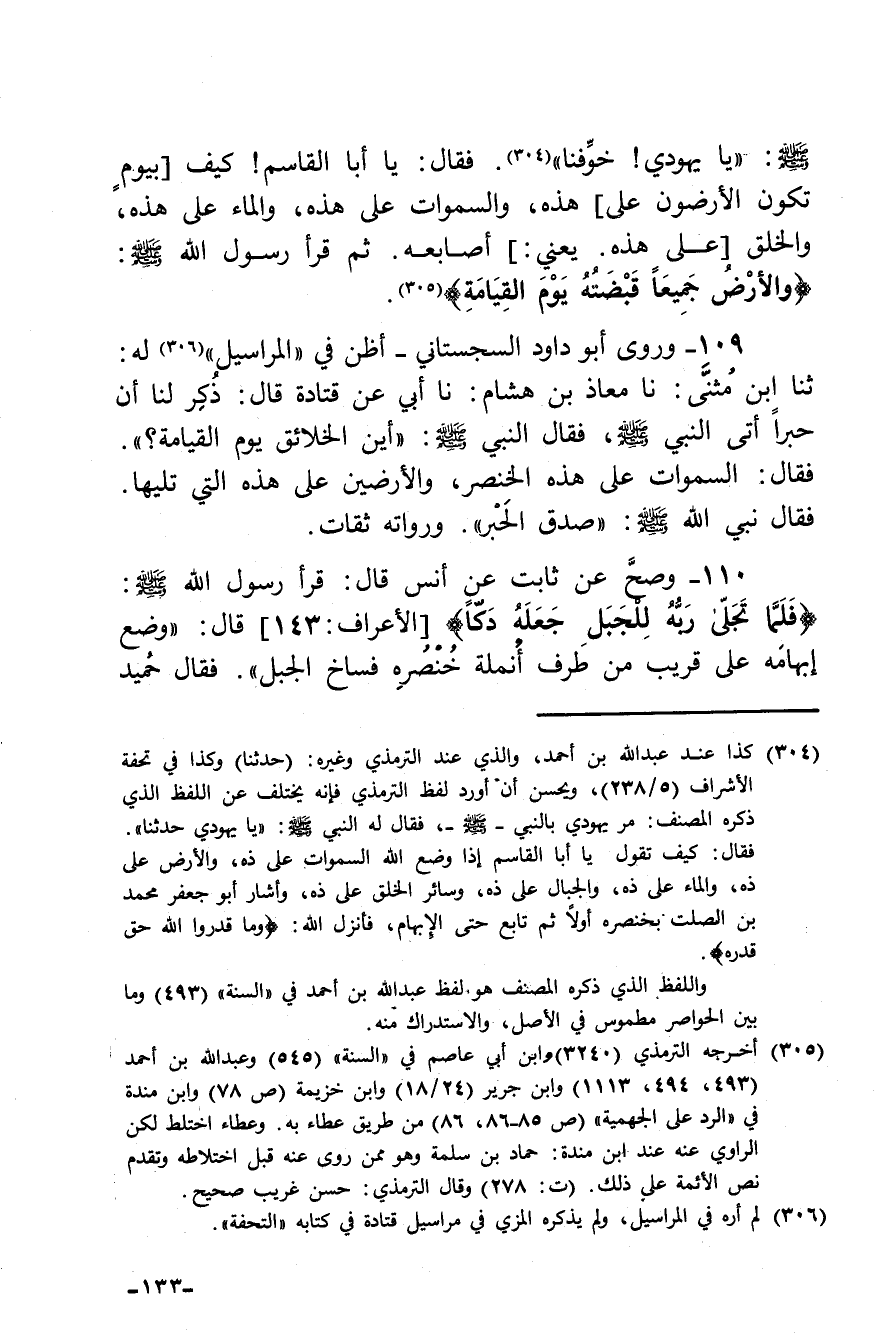 ﷺ: «يا يهودي! خوِّفنا»(٣٠٤). فقال: يا أبا القاسم! كيف [بيومٍ
تكون الأرضون على] هذه، والسموات على هذه، والماء على هذه،
والخلق [عـلى هذه. يعني:] أصـابعـه. ثم قرأ رسـول الله ﷺ:
﴿والأرْضُ جَمِيعَاً قَبْضَتُهُ يَوْمَ القِيَامَةِ﴾(٣٠٥).
١٠٩ـ وروى أبو داود السجستاني ـ أظن في «المراسيل»(٣٠٦) له:
ثنا ابن مُثنَّى: نا معاذ بن هشام: نا أبي عن قتادة قال: ذُكِر لنا أن
حبراً أتى النبي ﷺ، فقال النبي ﷺ: «أين الخلائق يوم القيامة؟».
فقال: السموات على هذه الخنصر، والأرضين على هذه التي تليها.
فقال نبي الله ﷺ: «صدق الحَبْر». ورواته ثقات.
١١٠ـ وصحَّ عن ثابت عن أنس قال: قرأ رسول الله ﷺ:
﴿فَلَمَّا تَجَلّىٰ رَبُّهُ لِلْجَبَلِ جَعَلَهُ دَكّاً﴾ [الأعراف:١٤٣] قال: «وضع
إبهامَه على قريب من طَرف أُنملة خُنْصُرِهِ فساخ الجبل». فقال حُميد
(٣٠٤) كذا عنـد عبدالله بن أحمد، والذي عند الترمذي وغيره: (حدثنا) وكذا في تحفة
الأشراف (٢٣٨/٥)، ويحسن أن أورد لفظ الترمذي فإنه يختلف عن اللفظ الذي
ذكره المصنف: مر يهودي بالنبي ـ ﷺ ـ، فقال له النبي ﷺ: «يا يهودي حدثنا».
فقال: كيف تقول يا أبا القاسم إذا وضع الله السموات على ذه، والأرض على
ذه، والماء على ذه، والجبال على ذه، وسائر الخلق على ذه، وأشار أبو جعفر محمد
بن الصلت بخنصره أولاً ثم تابع حتى الإبهام، فأنزل الله: ﴿وما قدروا الله حق
قدره﴾.
واللفظ الذي ذكره المصنف هو لفظ عبدالله بن أحمد في «السنة» (٤٩٣) وما
بين الحواصر مطموس في الأصل، والاستدراك منه.
(٣٠٥) أخـرجه الترمذي (٣٢٤٠)وابن أبي عاصم في «السنة» (٥٤٥) وعبدالله بن أحمد
(٤٩٣، ٤٩٤، ١١١٣) وابن جرير (١٨/٢٤) وابن خزيمة (ص ٧٨) وابن مندة
في «الرد على الجهمية» (ص ٨٥ـ٨٦، ٨٦) من طريق عطاء به. وعطاء اختلط لكن
الراوي عنه عند ابن مندة: حماد بن سلمة وهو ممن روى عنه قبل اختلاطه وتقدم
نص الأئمة على ذلك. (ت: ٢٧٨) وقال الترمذي: حسن غريب صحيح.
(٣٠٦) لم أره في المراسيل، ولم يذكره المزي في مراسيل قتادة في كتابه «التحفة».
ـ١٣٣ـ